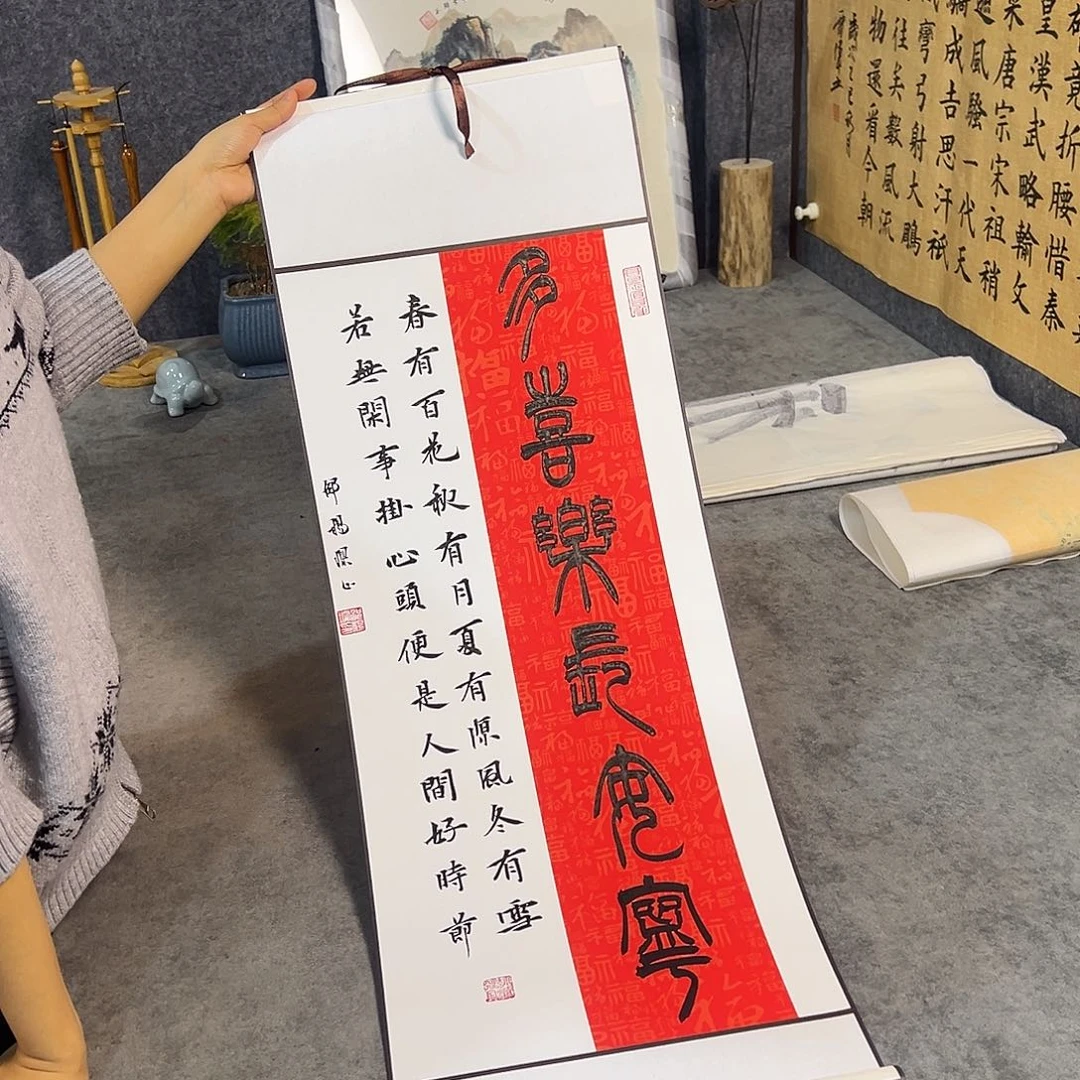 竟折腰惜秦
皇漢武略輸文
采唐宗宋祖稍
遜風騷一代天
驕成吉思汗祇
彎弓射大鵰
往矣數風流
物還看今朝
多喜樂長安寧
春有百花秋有月夏有涼風冬有雪
若無閑事掛心頭便是人間好時節